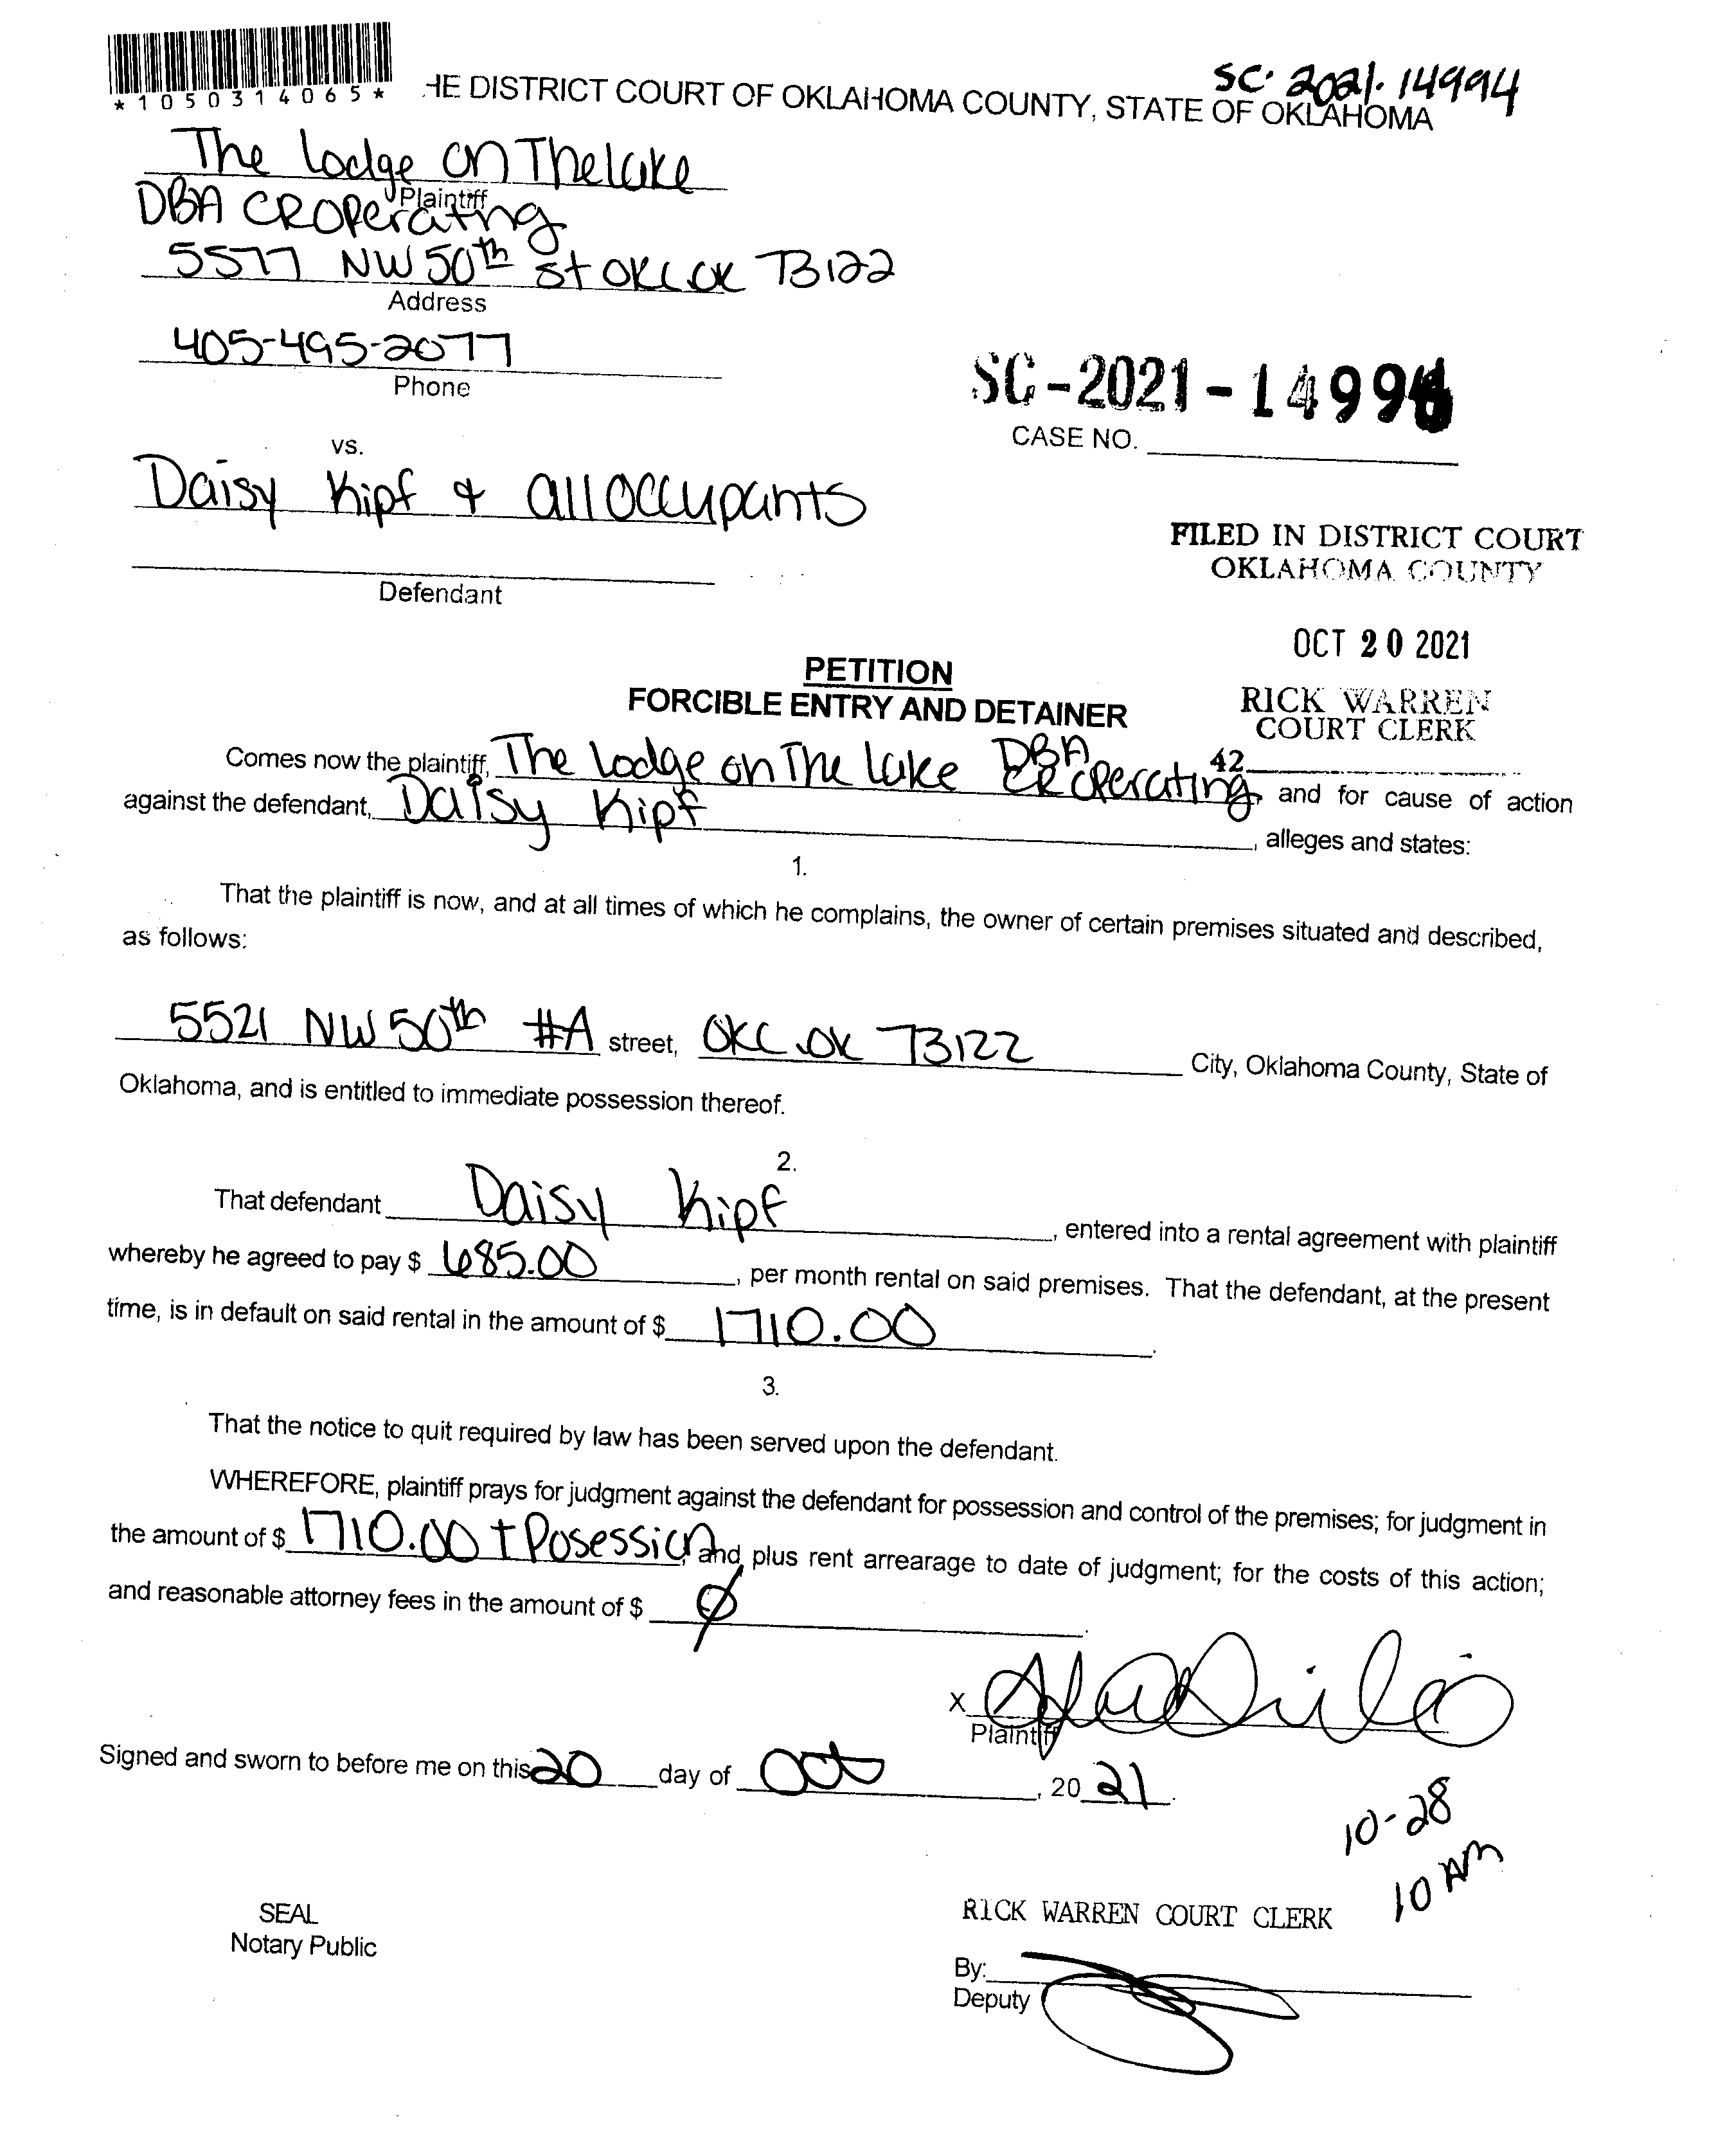 *1050314065*
HE DISTRICT COURT OF OKLAHOMA COUNTY, STATE OF OKLAHOMA
SC. 2021. 14994
The Lodge on The lake
Plaintiff
DBA CROperating
5577 NW 50th St OKC OK 73122
Address
405-495-2077
Phone
SC-2021-1499
CASE NO.
vs.
Daisy Kipf & all occupants
Defendant
FILED IN DISTRICT COURT
OKLAHOMA COUNTY
OCT 20 2021
RICK WARREN
COURT CLERK
42
PETITION
FORCIBLE ENTRY AND DETAINER
Comes now the plaintiff, The Lodge on The lake DBA CR Operating, and for cause of action
against the defendant, Daisy Kipf, alleges and states:
1.
That the plaintiff is now, and at all times of which he complains, the owner of certain premises situated and described,
as follows:
5521 NW 50th #A street, OKC OK 73122 City, Oklahoma County, State of
Oklahoma, and is entitled to immediate possession thereof.
2.
That defendant Daisy Kipf, entered into a rental agreement with plaintiff
whereby he agreed to pay $ 685.00, per month rental on said premises. That the defendant, at the present
time, is in default on said rental in the amount of $ 1710.00.
3.
That the notice to quit required by law has been served upon the defendant.
WHEREFORE, plaintiff prays for judgment against the defendant for possession and control of the premises; for judgment in
the amount of $ 1710.00 + Posession, and, plus rent arrearage to date of judgment; for the costs of this action;
and reasonable attorney fees in the amount of $ ∅.
X
Plaintiff
Signed and sworn to before me on this 20 day of Oct, 20 21.
10-28
10 AM
SEAL
Notary Public
RICK WARREN COURT CLERK
By:
Deputy